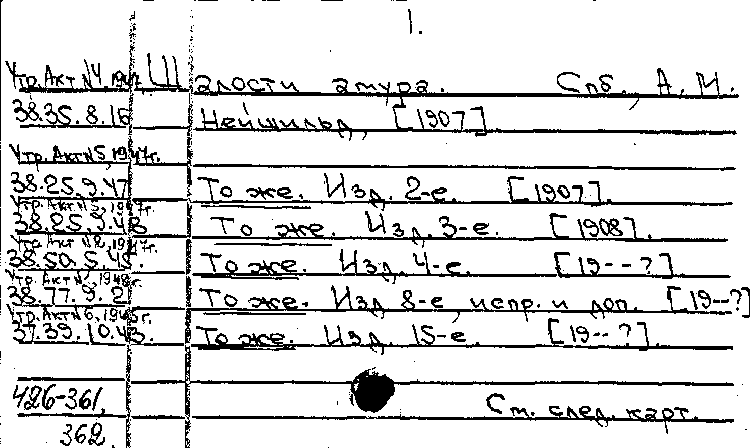 1.
Утр. Акт №4, 194 Шалости амура. Спб., А. М.
38.35.8.16 Нейшильд, [1907].
Утр. Акт №5, 1947г.
38.25.9.47 То же. Изд. 2-е. [1907].
Утр. Акт №5, 1947г.
38.25.9.48 То же. Изд. 3-е. [1908].
Утр. Акт №2, 1947г.
38.50.5.45. То же. Изд. 4-е. [19--?].
38.77.9.2 То же. Изд 8-е, испр. и доп. [19--?]
Утр. Акт №6, 1945г.
37.39.10.43. То же. Изд. 15-е. [19--?].
426-361, См. след. карт.
362.